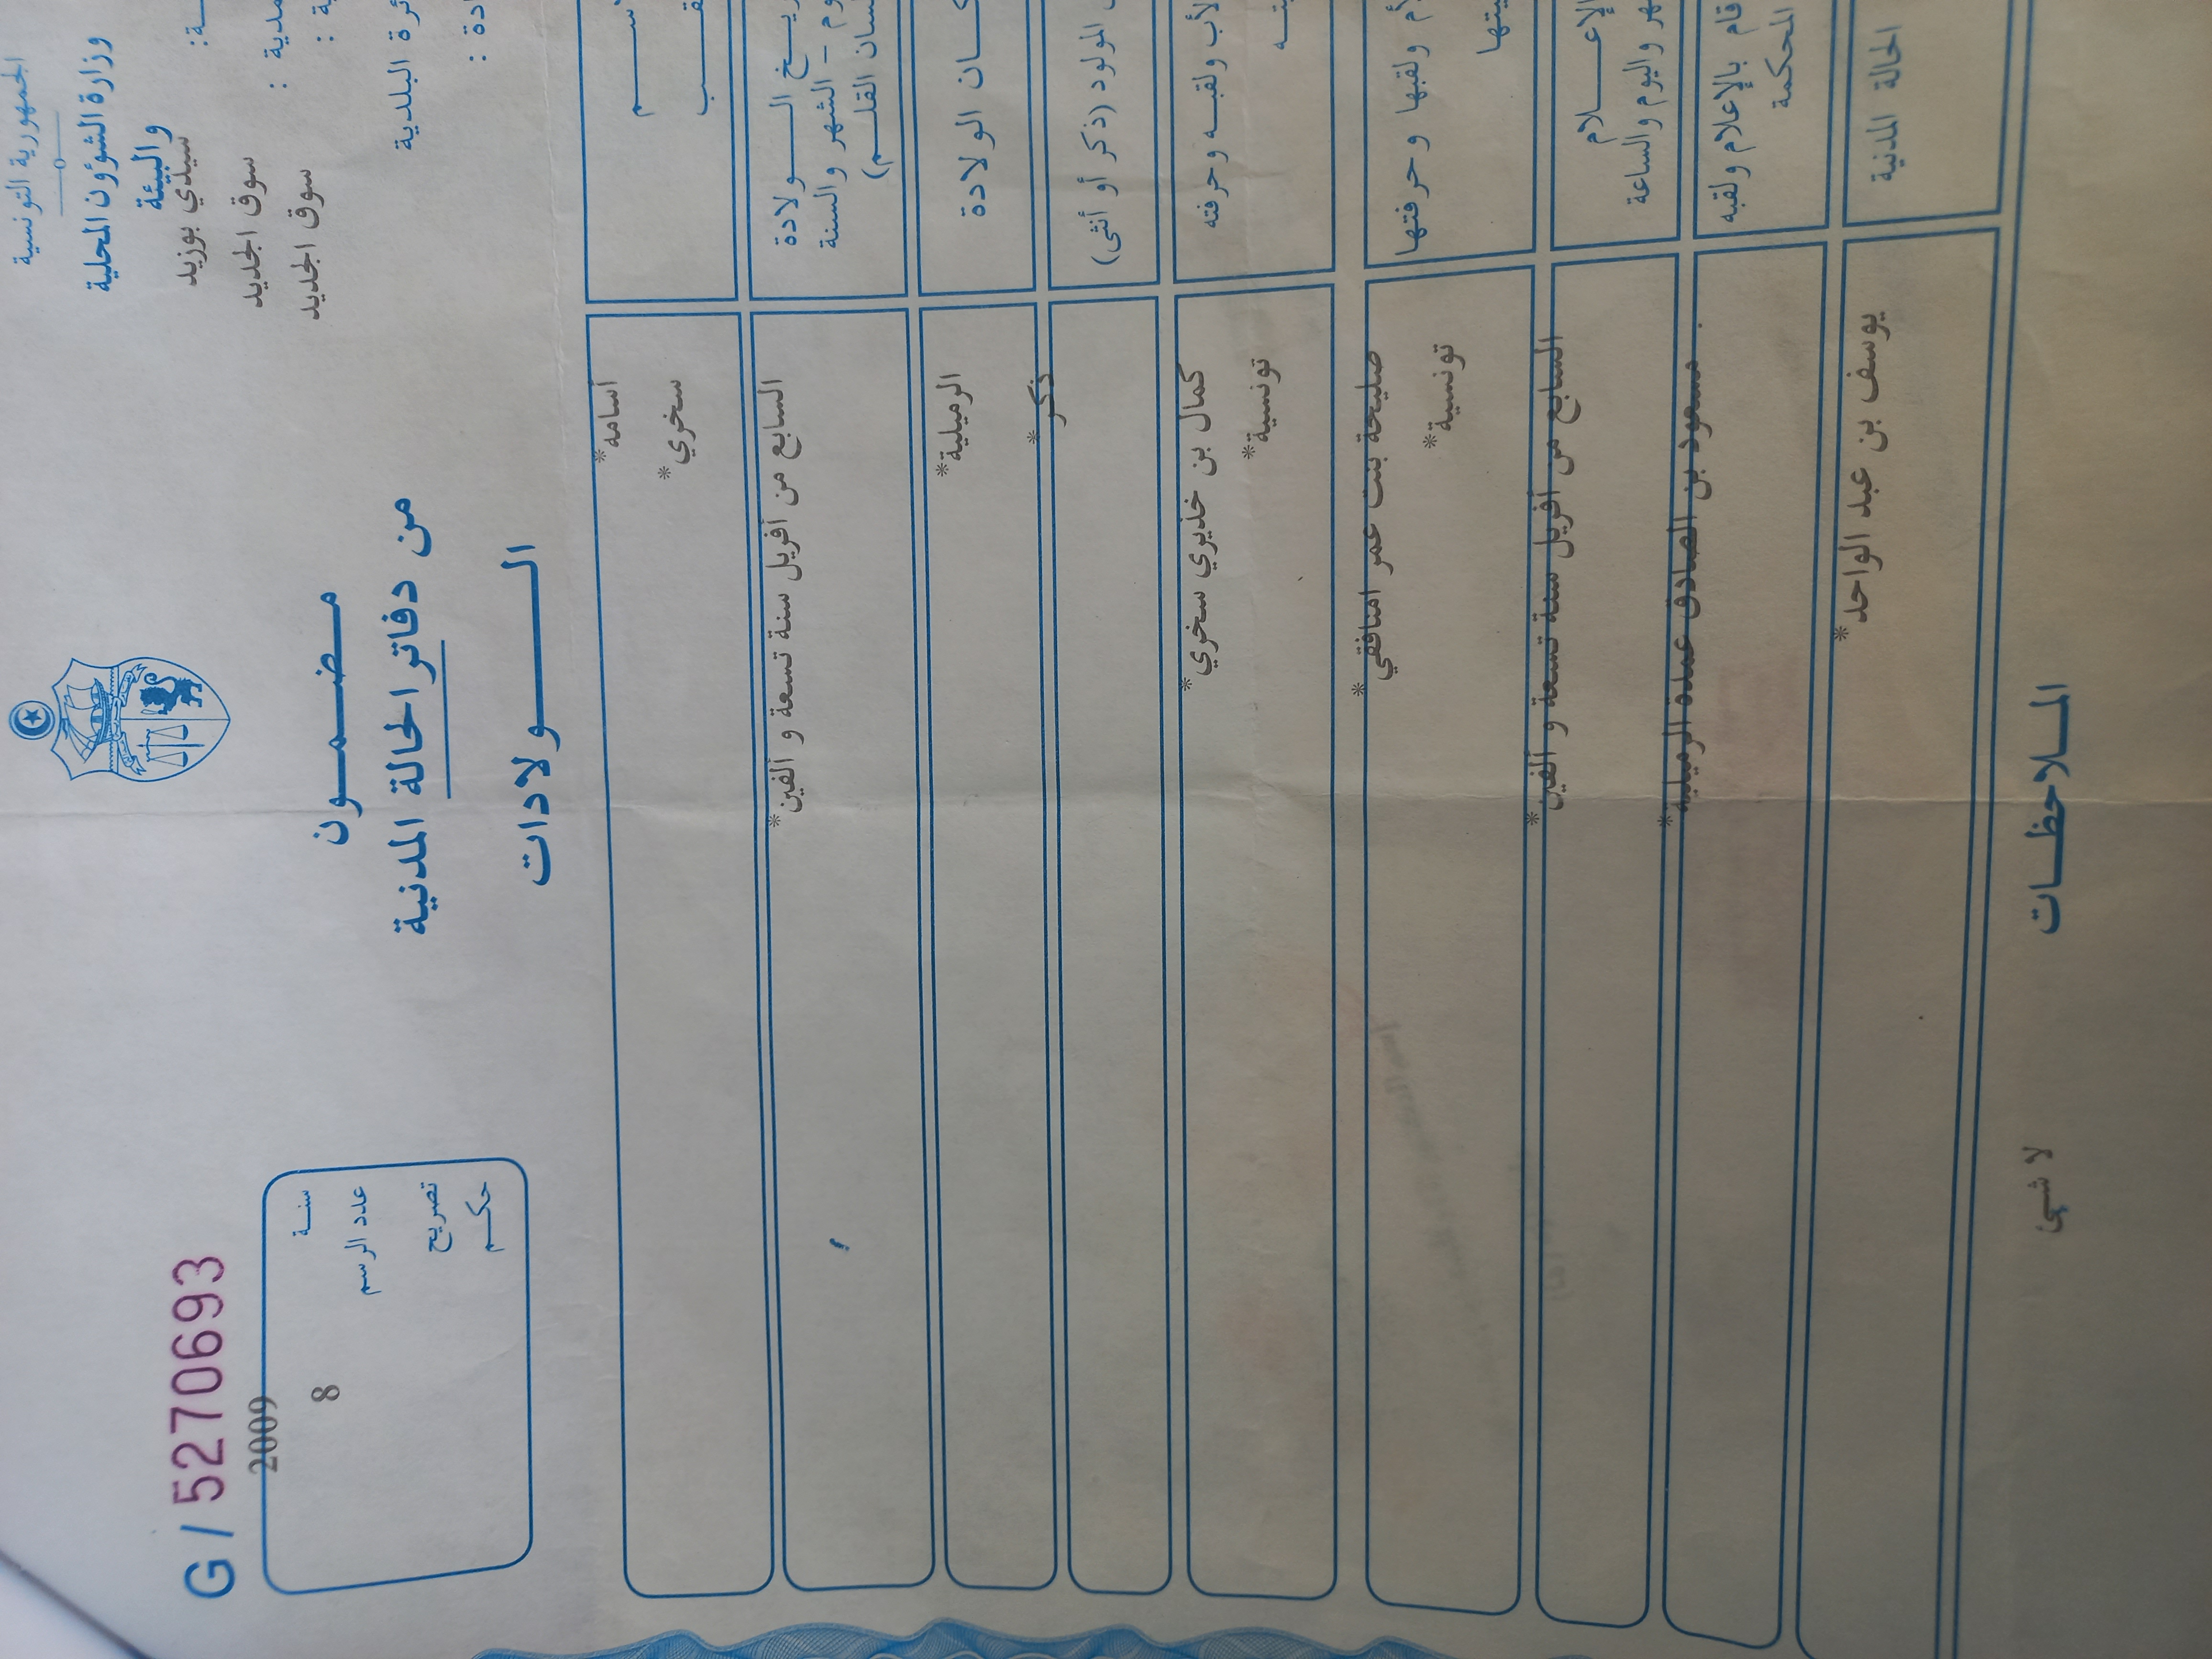 الجمهورية التونسية
وزارة الشؤون المحلية
والبيئة
سيدي بوزيد
سوق الجديد
سوق الجديد
البلدية
G / 5270693
سنة 2009
عدد الرسم 8
تصريح
حكم
مضمون
من دفاتر الحالة المدنية
الولادات
أسامه*
سخري*
الولادة
الشهر والسنة
القلم)
السابع من أفريل سنة تسعة و ألفين*
الولادة
الرميلية*
المولود (ذكر أو أنثى)
ذكر*
ولقبه وحرفته
كمال بن خذيري سخري*
تونسية*
ولقبها وحرفتها
صليحة بنت عمر امنافقي*
تونسية*
الإعلام
واليوم والساعة
السابع من أفريل سنة تسعة و ألفين*
قام بالإعلام ولقبه
المحكمة
مسعود بن الصادق عمدة الرميلية*
الحالة المدنية
يوسف بن عبد الواحد*
الملاحظات
لا شيئ